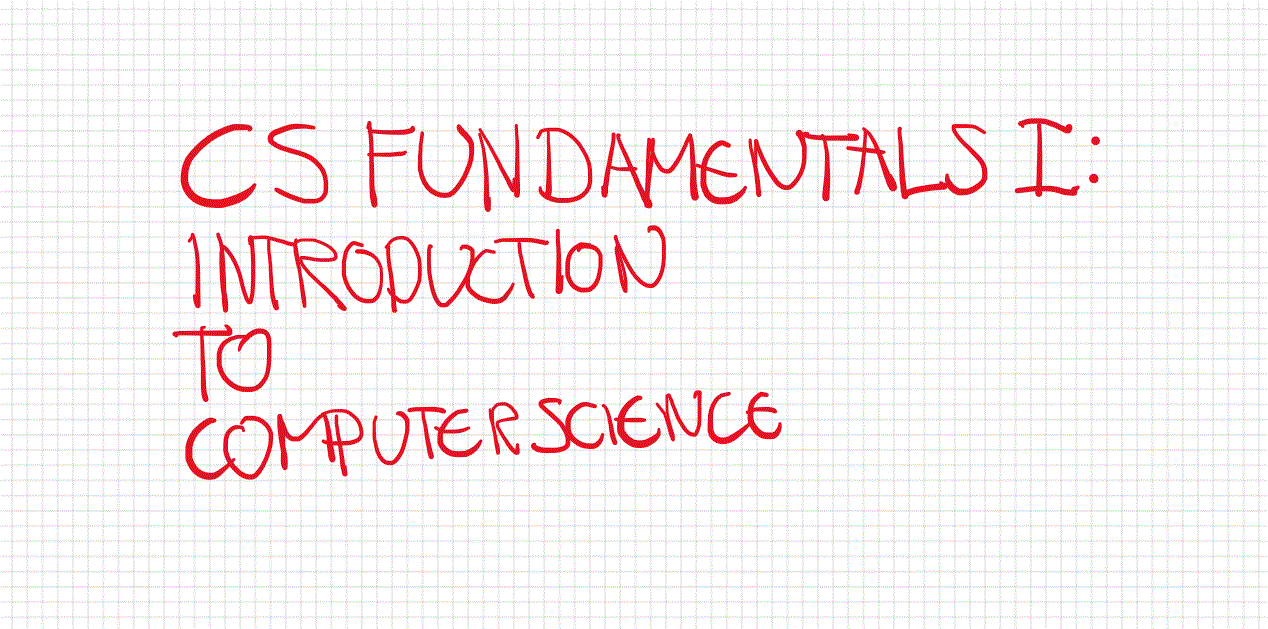 CS FUNDAMENTALS I:
INTRODUCTION
TO
COMPUTER SCIENCE